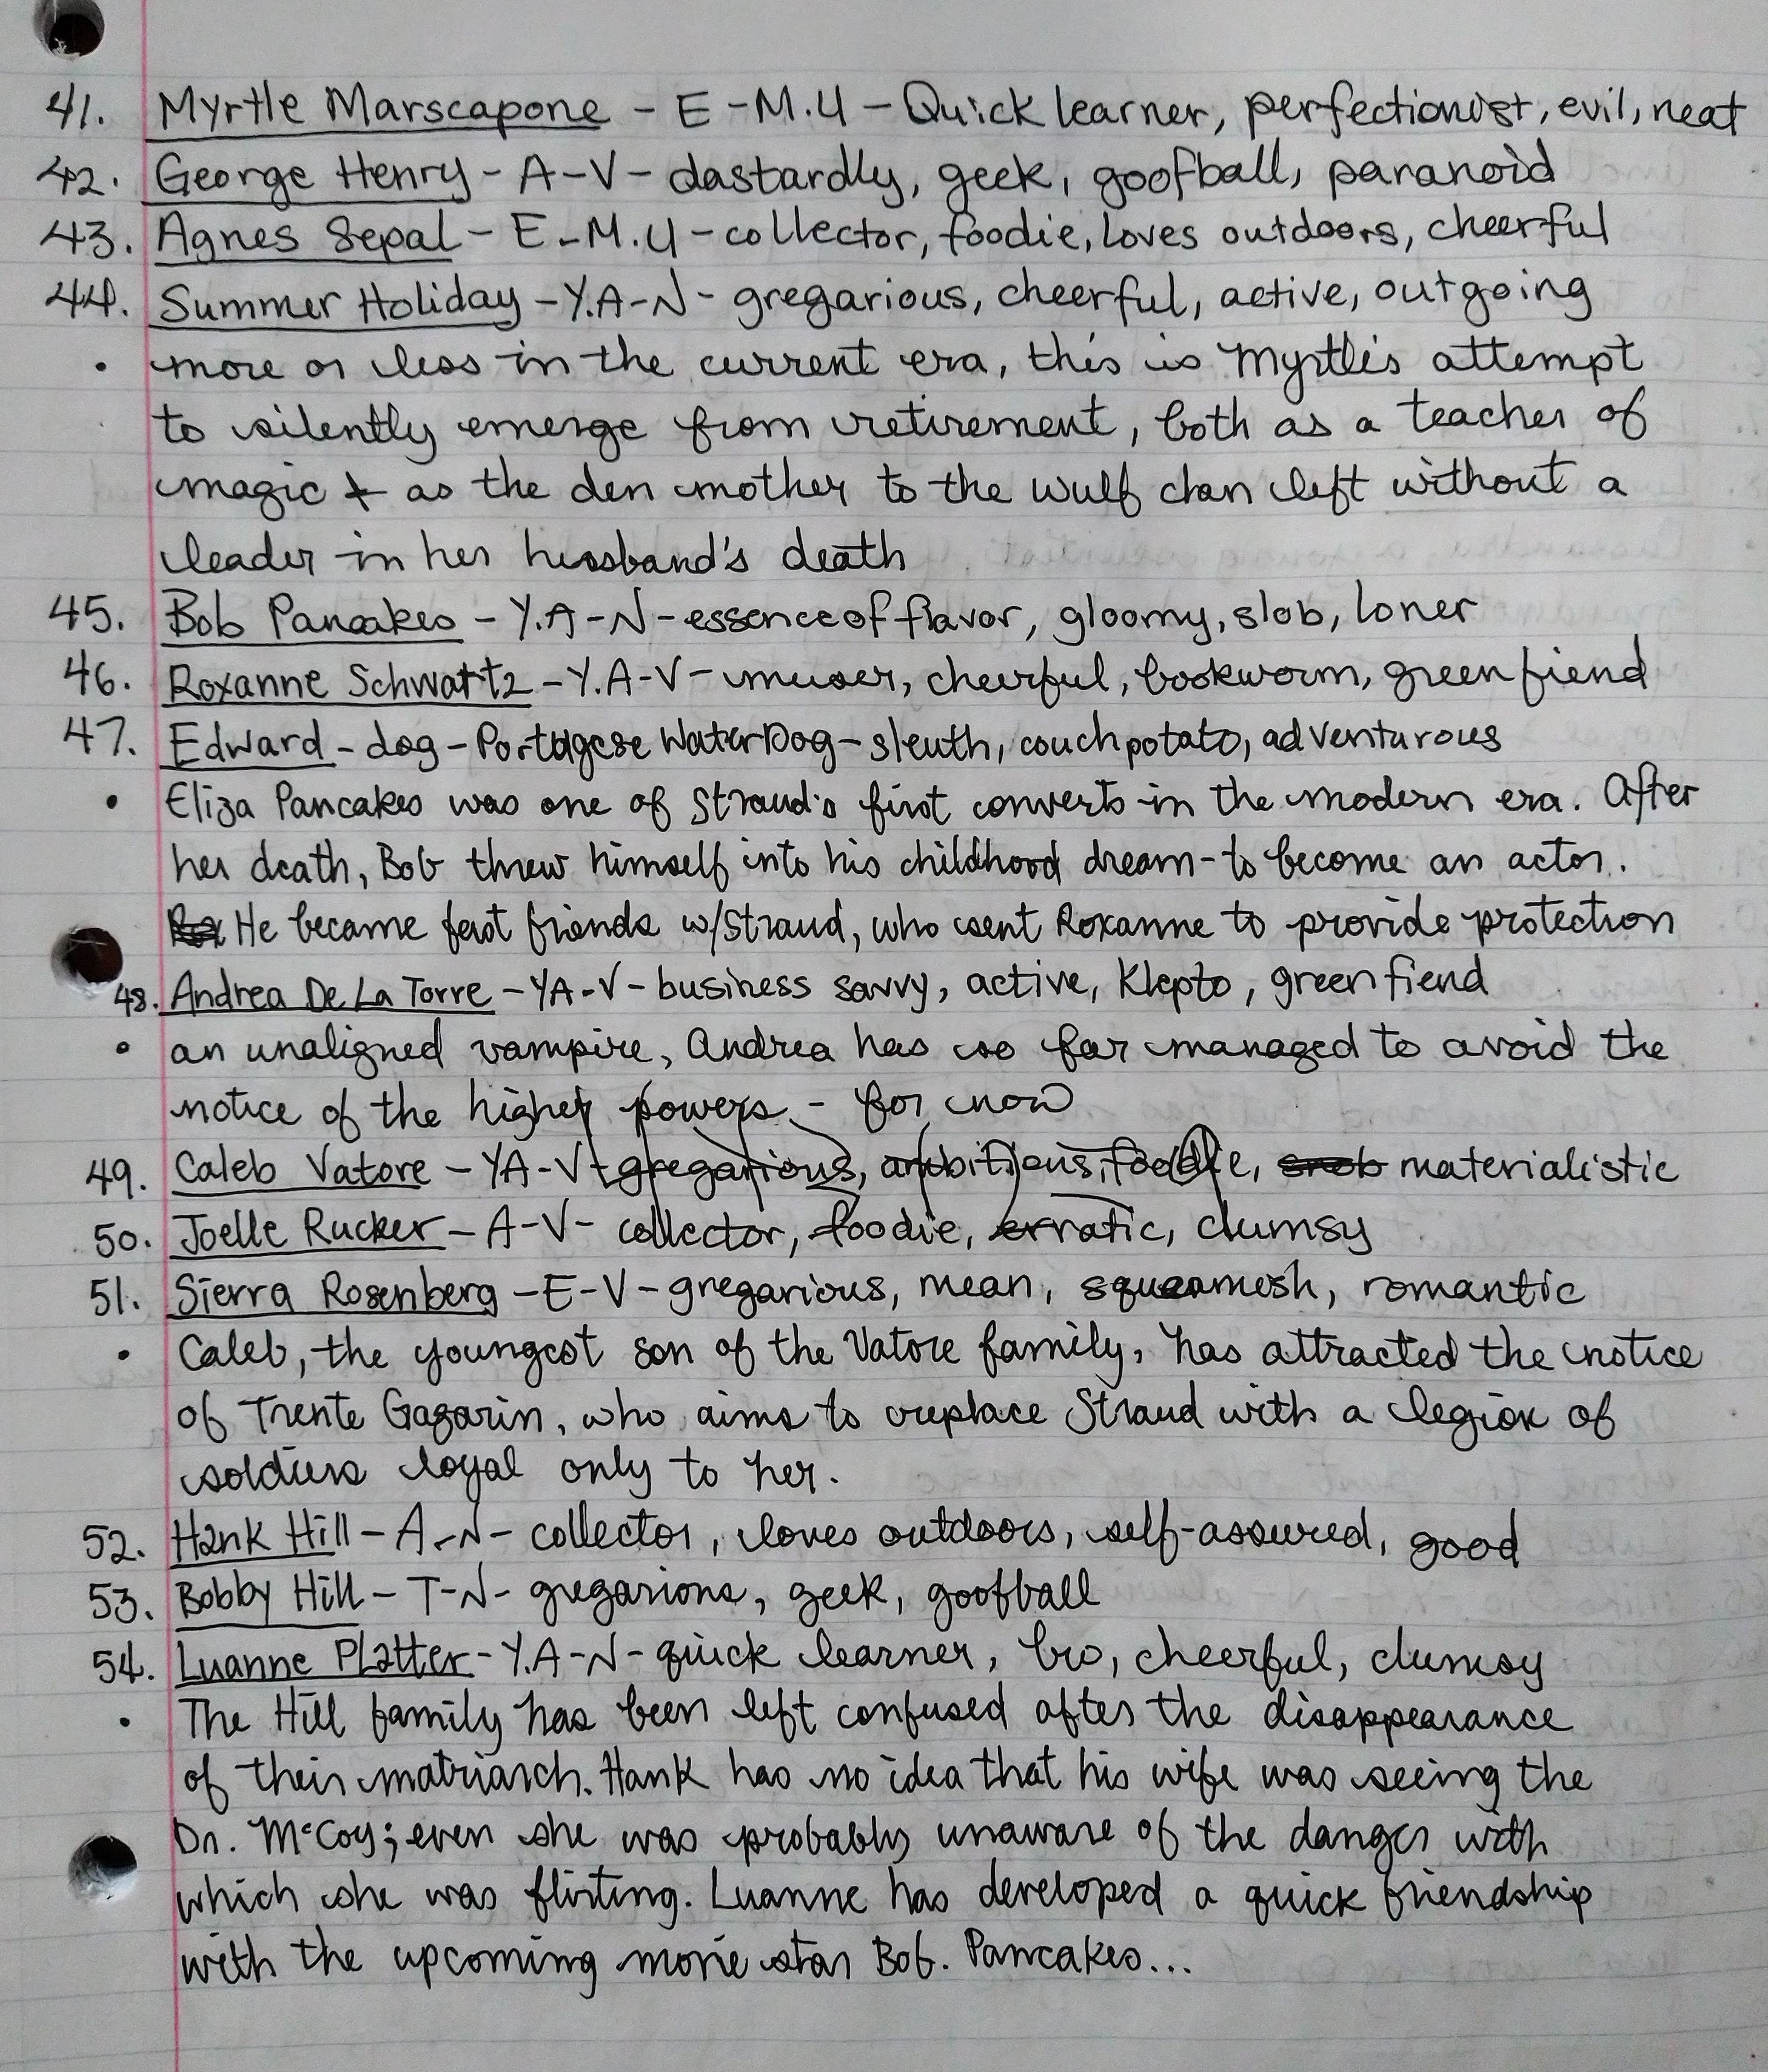 41. Myrtle Marscapone - E - M.U - Quick learner, perfectionist, evil, neat
42. George Henry - A - V - dastardly, geek, goofball, paranoid
43. Agnes Sepal - E - M.U - collector, foodie, loves outdoors, cheerful
44. Summer Holiday - Y.A - N - gregarious, cheerful, active, outgoing
• more or less in the current era, this is Myrtle's attempt
to silently emerge from retirement, both as a teacher of
magic + as the den mother to the wulf clan left without a
leader in her husband's death
45. Bob Pancakes - Y.A - N - essence of flavor, gloomy, slob, loner
46. Roxanne Schwartz - Y.A - V - muser, cheerful, bookworm, green fiend
47. Edward - dog - Portugese Water Dog - sleuth, couch potato, adventurous
• Eliza Pancakes was one of Straud's first converts in the modern era. After
her death, Bob threw himself into his childhood dream - to become an actor.
He became fast friends w/Straud, who sent Roxanne to provide protection
48. Andrea De La Torre - YA - V - business savvy, active, Klepto, green fiend
• an unaligned vampire, Andrea has so far managed to avoid the
notice of the higher powers - for now
49. Caleb Vatore - YA - V - gregarious, ambitious, foodie, snob materialistic
50. Joelle Rucker - A - V - collector, foodie, erratic, clumsy
51. Sierra Rosenberg - E - V - gregarious, mean, squeamish, romantic
• Caleb, the youngest son of the Vatore family, has attracted the notice
of Trente Gagarin, who aims to replace Straud with a legion of
soldiers loyal only to her.
52. Hank Hill - A - N - collector, loves outdoors, self-assured, good
53. Bobby Hill - T - N - gregarious, geek, goofball
54. Luanne Platter - Y.A - N - quick learner, bro, cheerful, clumsy
• The Hill family has been left confused after the disappearance
of their matriarch. Hank has no idea that his wife was seeing the
Dr. McCoy; even she was probably unaware of the danger with
which she was flirting. Luanne has developed a quick friendship
with the upcoming movie star Bob. Pancakes...